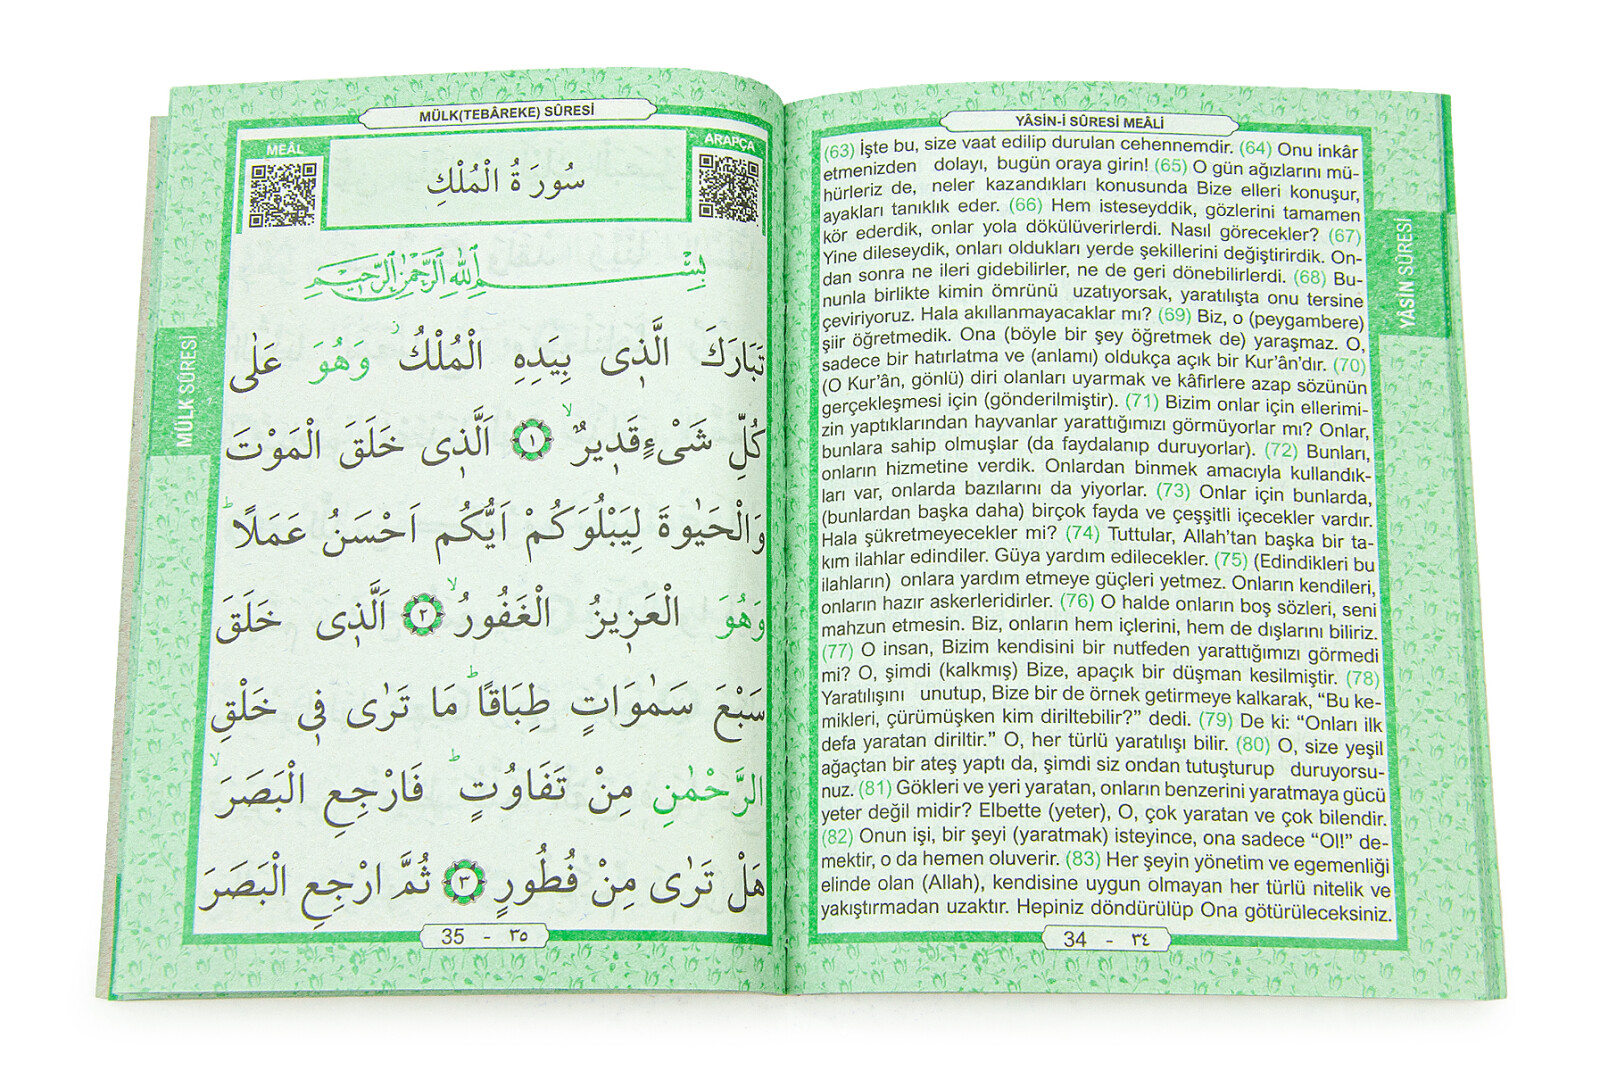 YÂSİN-İ SÛRESİ MEÂLİ
(63) İşte bu, size vaat edilip durulan cehennemdir. (64) Onu inkâr
etmenizden dolayı, bugün oraya girin! (65) O gün ağızlarını mü-
hürleriz de, neler kazandıkları konusunda Bize elleri konuşur,
ayakları tanıklık eder. (66) Hem isteseyddik, gözlerini tamamen
kör ederdik, onlar yola dökülüverirlerdi. Nasıl görecekler? (67)
Yine dileseydik, onları oldukları yerde şekillerini değiştirirdik. On-
dan sonra ne ileri gidebilirler, ne de geri dönebilirlerdi. (68) Bu-
nunla birlikte kimin ömrünü uzatıyorsak, yaratılışta onu tersine
çeviriyoruz. Hala akıllanmayacaklar mı? (69) Biz, o (peygambere)
şiir öğretmedik. Ona (böyle bir şey öğretmek de) yaraşmaz. O,
sadece bir hatırlatma ve (anlamı) oldukça açık bir Kur'ân'dır. (70)
(O Kur'ân, gönlü) diri olanları uyarmak ve kâfirlere azap sözünün
gerçekleşmesi için (gönderilmiştir). (71) Bizim onlar için ellerimi-
zin yaptıklarından hayvanlar yarattığımızı görmüyorlar mı? Onlar,
bunlara sahip olmuşlar (da faydalanıp duruyorlar). (72) Bunları,
onların hizmetine verdik. Onlardan binmek amacıyla kullandık-
ları var, onlarda bazılarını da yiyorlar. (73) Onlar için bunlarda,
(bunlardan başka daha) birçok fayda ve çeşşitli içecekler vardır.
Hala şükretmeyecekler mi? (74) Tuttular, Allah'tan başka bir ta-
kım ilahlar edindiler. Güya yardım edilecekler. (75) (Edindikleri bu
ilahların) onlara yardım etmeye güçleri yetmez. Onların kendileri,
onların hazır askerleridirler. (76) O halde onların boş sözleri, seni
mahzun etmesin. Biz, onların hem içlerini, hem de dışlarını biliriz.
(77) O insan, Bizim kendisini bir nutfeden yarattığımızı görmedi
mi? O, şimdi (kalkmış) Bize, apaçık bir düşman kesilmiştir. (78)
Yaratılışını unutup, Bize bir de örnek getirmeye kalkarak, "Bu ke-
mikleri, çürümüşken kim diriltebilir?" dedi. (79) De ki: "Onları ilk
defa yaratan diriltir." O, her türlü yaratılışı bilir. (80) O, size yeşil
ağaçtan bir ateş yaptı da, şimdi siz ondan tutuşturup duruyorsu-
nuz. (81) Gökleri ve yeri yaratan, onların benzerini yaratmaya gücü
yeter değil midir? Elbette (yeter), O, çok yaratan ve çok bilendir.
(82) Onun işi, bir şeyi (yaratmak) isteyince, ona sadece "Ol!" de-
mektir, o da hemen oluverir. (83) Her şeyin yönetim ve egemenliği
elinde olan (Allah), kendisine uygun olmayan her türlü nitelik ve
yakıştırmadan uzaktır. Hepiniz döndürülüp Ona götürüleceksiniz.
34 - ٣٤
YÂSİN SÛRESİ
MÜLK(TEBÂREKE) SÛRESİ
MEÂL
ARAPÇA
سُورَةُ الْمُلْكِ
بِسْمِ اللّٰهِ الرَّحْمٰنِ الرَّحِيمِ
تَبَارَكَ الَّذ۪ى بِيَدِهِ الْمُلْكُۘ وَهُوَ عَلٰى
كُلِّ شَىْءٍ قَد۪يرٌۙ ﴿١﴾ اَلَّذ۪ى خَلَقَ الْمَوْتَ
وَالْحَيٰوةَ لِيَبْلُوَكُمْ اَيُّكُمْ اَحْسَنُ عَمَلًاۜ
وَهُوَ الْعَز۪يزُ الْغَفُورُۙ ﴿٢﴾ اَلَّذ۪ى خَلَقَ
سَبْعَ سَمٰوَاتٍ طِبَاقًاۜ مَا تَرٰى ف۪ى خَلْقِ
الرَّحْمٰنِ مِنْ تَفَاوُتٍۜ فَارْجِعِ الْبَصَرَۙ
هَلْ تَرٰى مِنْ فُطُورٍ ﴿٣﴾ ثُمَّ ارْجِعِ الْبَصَرَ
35 - ٣٥
MÜLK SÛRESİ